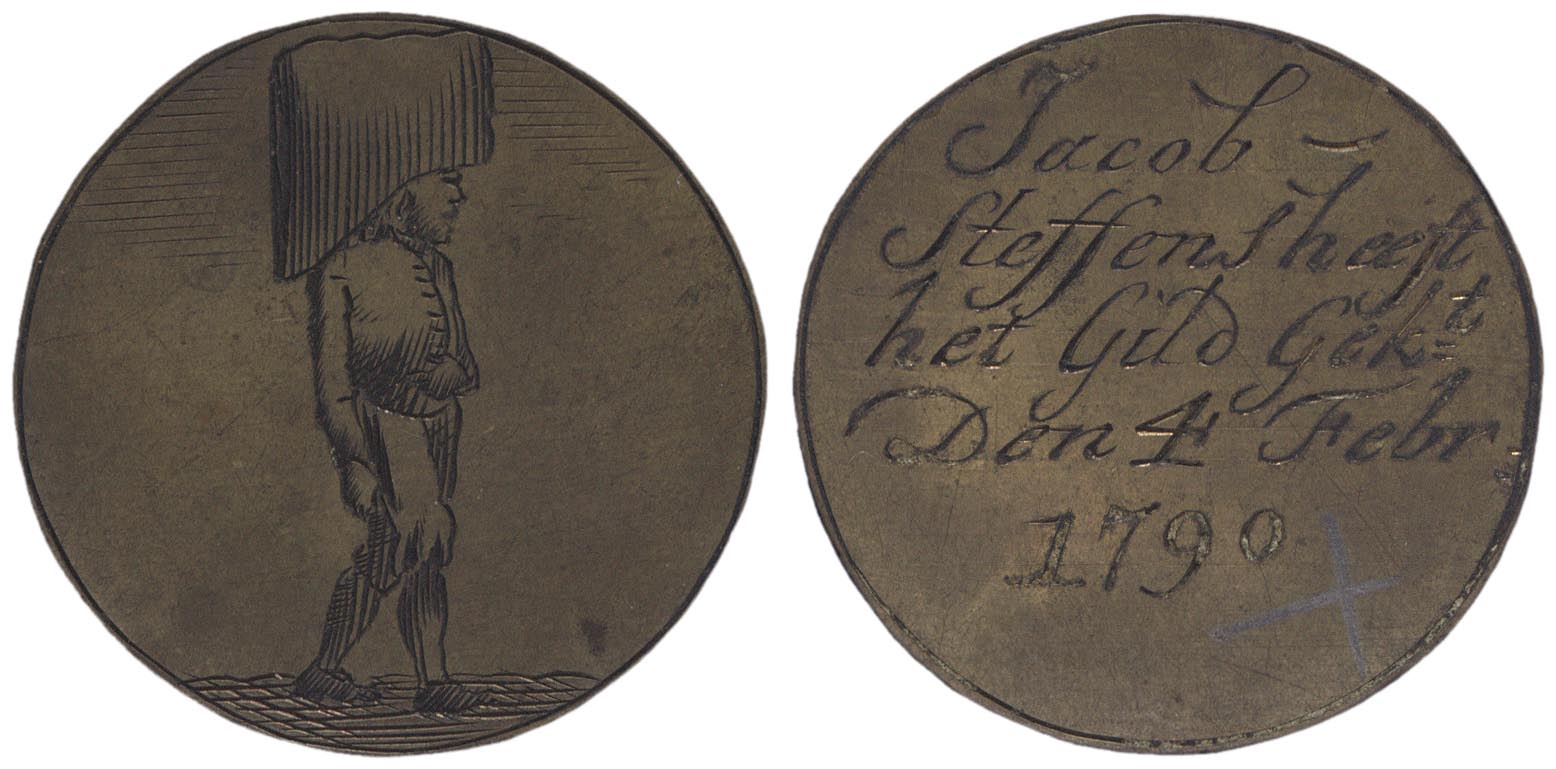 Jacob
Steffens heeft
het Gild Gekt
Den 4 Febr
1790